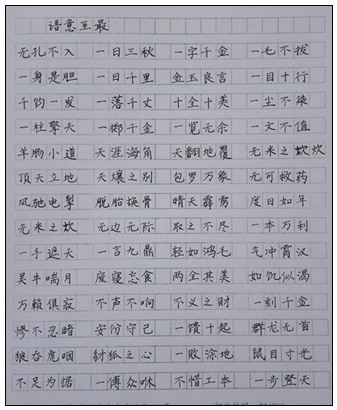 语意豆最
无孔不入 一日三秋 一字千金 一毛不拔
一身是胆 一日千里 金玉良言 一目十行
千钧一发 一落千丈 十全十美 一尘不染
一柱擎天 一掷千金 一览无余 一文不值
羊肠小道 天涯海角 天翻地覆 无米之炊炊
顶天立地 天壤之别 包罗万象 无可救药
风驰电掣 脱胎换骨 晴天霹雳 度日如年
无米之炊 无边无际 取之不尽 一本万利
一手遮天 一言九鼎 轻如鸿毛 气冲霄汉
吴牛喘月 废寝忘食 两全其美 如饥似渴
万籁俱寂 不声不响 不义之财 一刻千金
惨不忍睹 安份守己 一馈十起 群龙无首
狼吞虎咽 豺狐之心 一败涂地 鼠目寸光
不足为据 一傅众咻 不惜工本 一步登天